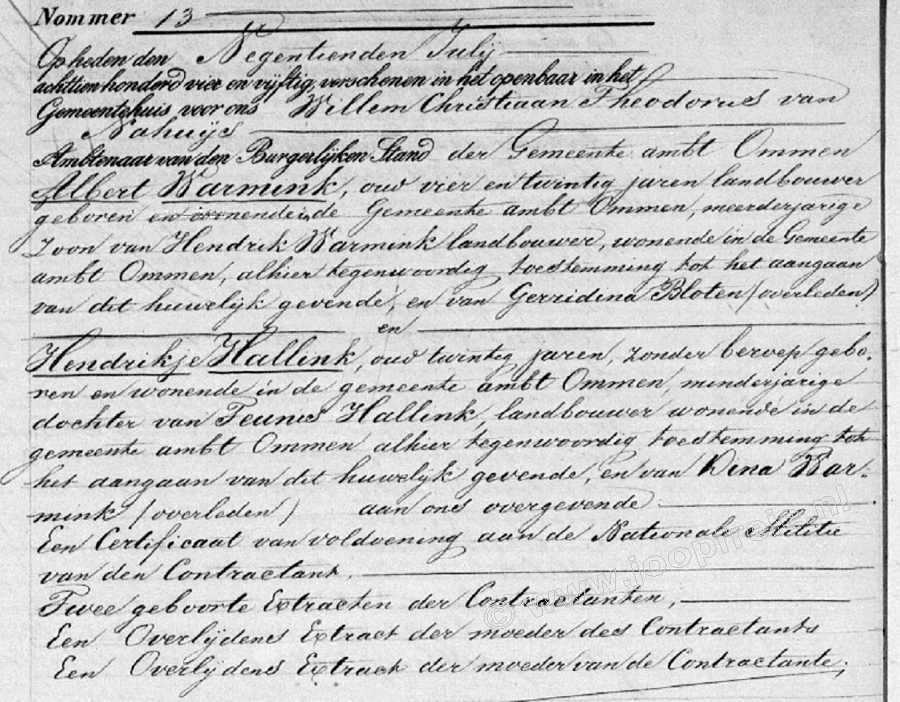 Nommer 13
Op heden den Negentienden Julij
achttien honderd vier en vijftig, verschenen in het openbaar in het
Gemeentehuis voor ons Willem Christiaan Theodorus van
Nahuijs
Ambtenaar van den Burgerlijken Stand der Gemeente ambt Ommen
Albert Warmink, oud vier en twintig jaren landbouwer
geboren en wonende in de Gemeente ambt Ommen, meerderjarige
Zoon van Hendrik Warmink landbouwer, wonende in de Gemeente
ambt Ommen, alhier tegenwoordig toestemming tot het aangaan
van dit huwelijk gevende, en van Gerridina Bloten (overleden)
en
Hendrikje Hallink, oud twintig jaren, zonder beroep gebo-
ren en wonende in de gemeente ambt Ommen, minderjarige
dochter van Teunes Hallink, landbouwer wonende in de
gemeente ambt Ommen alhier tegenwoordig toestemming tot
het aangaan van dit huwelijk gevende, en van Dina War-
mink (overleden) aan ons overgevende
Een Certificaat van voldoening aan de Nationale Militie
van den Contractant.
Twee geboorte Extracten der Contractanten,
Een Overlijdens Extract der moeder des Contractants
Een Overlijdens Extract der moeder van de Contractante;